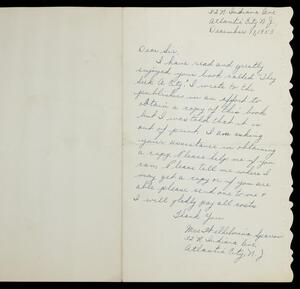 32 N. Indiana Ave
Atlantic City N.J.
December 1, 1953
Dear Sir,
I have read and greatly
enjoyed your book called "They
Seek A City". I wrote to the
publisher in an effort to
obtain a copy of this book
but I was told that it is
out of print. I am asking
your assistance in obtaining
a copy. Please help me if you
can. Please tell me where I
may get a copy or if you are
able please send one to me &
I will gladly pay all costs.
Thank You
Mrs.
32 N. Indiana Ave
Atlantic City, N. J.